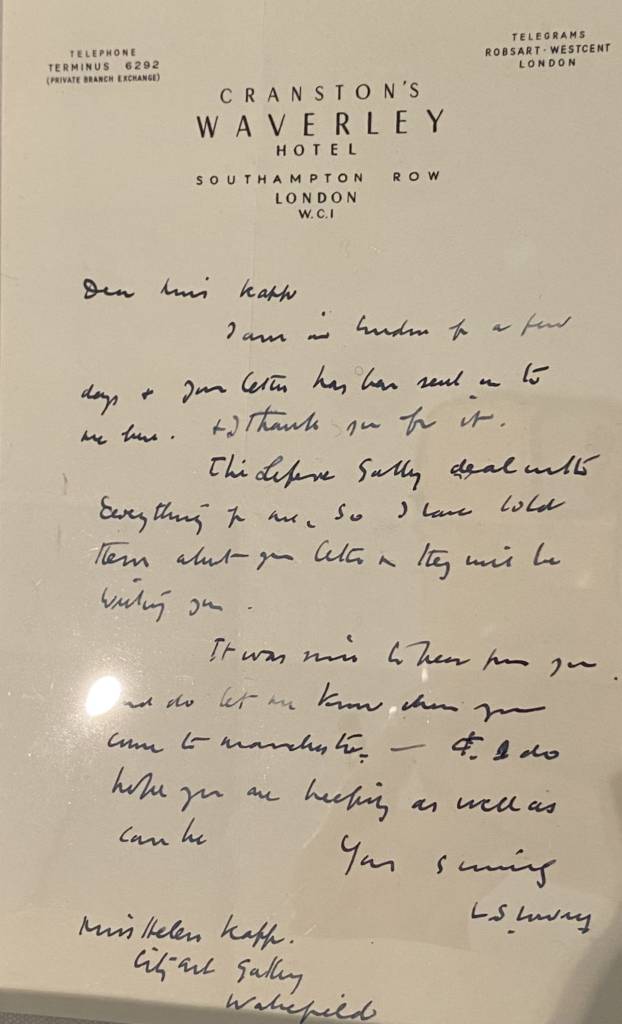 TELEPHONE
TERMINUS 6292
(PRIVATE BRANCH EXCHANGE)
TELEGRAMS
ROBSART·WESTCENT
LONDON
CRANSTON'S
WAVERLEY
HOTEL
SOUTHAMPTON ROW
LONDON
W.C.1
Dear Miss Kapp
I am in London for a few
days & your letter has been sent on to
me here. & I thank you for it.
The Lefevre Gallery deal with
Everything for me, so I have told
them about your letter & they will be
writing you.
It was nice to hear from you.
and do let me know when you
come to Manchester. — & I do
hope you are keeping as well as
can be
Yours sincerely
L S Lowry
Miss Helen Kapp.
City Art Gallery
Wakefield